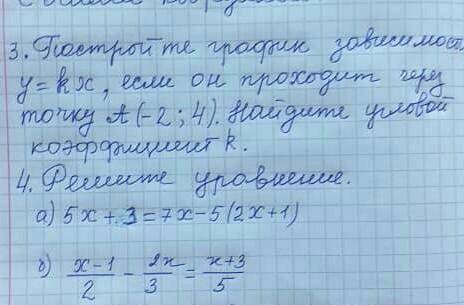 3. Постройте график зависимост
y=kx, если он проходит через
точку A(-2;4). Найдите угловой
коэффициент k.
4. Решите уравнение.
а) 5x+3=7x-5(2x+1)
б) (x-1)/2 - 2x/3 = (x+3)/5